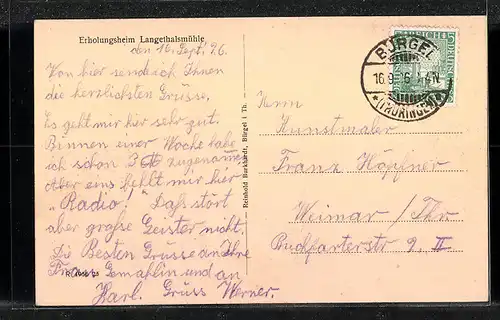 Erholungsheim Langethalsmühle
den 16. Sept. 26.
Von hier sende ich Ihnen
die herzlichsten Grüsse.
Es geht mir hier sehr gut.
Binnen einer Woche habe
ich schon 3 ℔ zugenommen
Aber eins fehlt mir hier
„Radio“! Daß stört
aber große Geister nicht.
Die Besten Grüsse an Ihre
Frau Gemahlin und an
Karl. Gruss Werner.
Reinhold Burkhardt, Bürgel i. Th.
BÜRGEL
16.9.26
(THÜRINGEN)
Herrn
Kunstmaler
Franz Höpfner
Weimar / Thür
Buchfarterstr 9. II